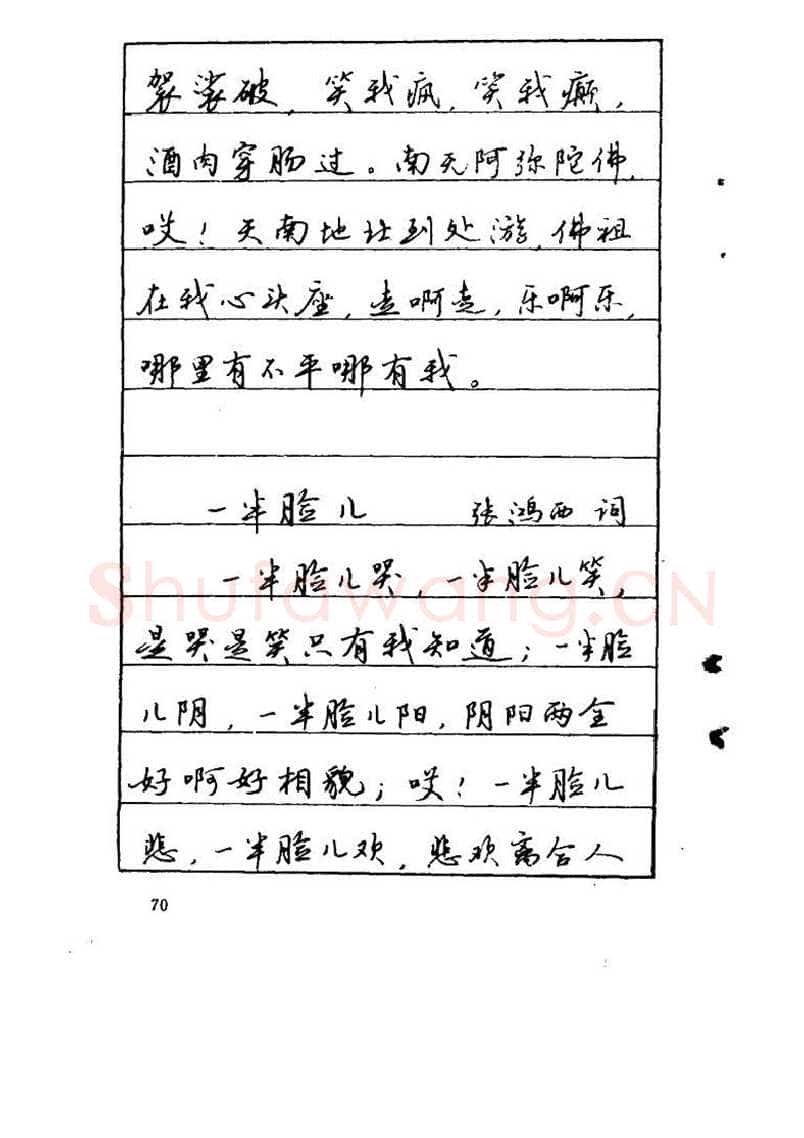 袈裟破，笑我疯，笑我癫，
酒肉穿肠过。南无阿弥陀佛，
哎！天南地北到处游，佛祖
在我心头座，走啊走，乐啊乐，
哪里有不平哪有我。
一半脸儿 张鸿西 词
一半脸儿哭，一半脸儿笑，
是哭是笑只有我知道；一半脸
儿阴，一半脸儿阳，阴阳两全
好啊好相貌；哎！一半脸儿
悲，一半脸儿欢，悲欢离合人
70
Shufawang.CN